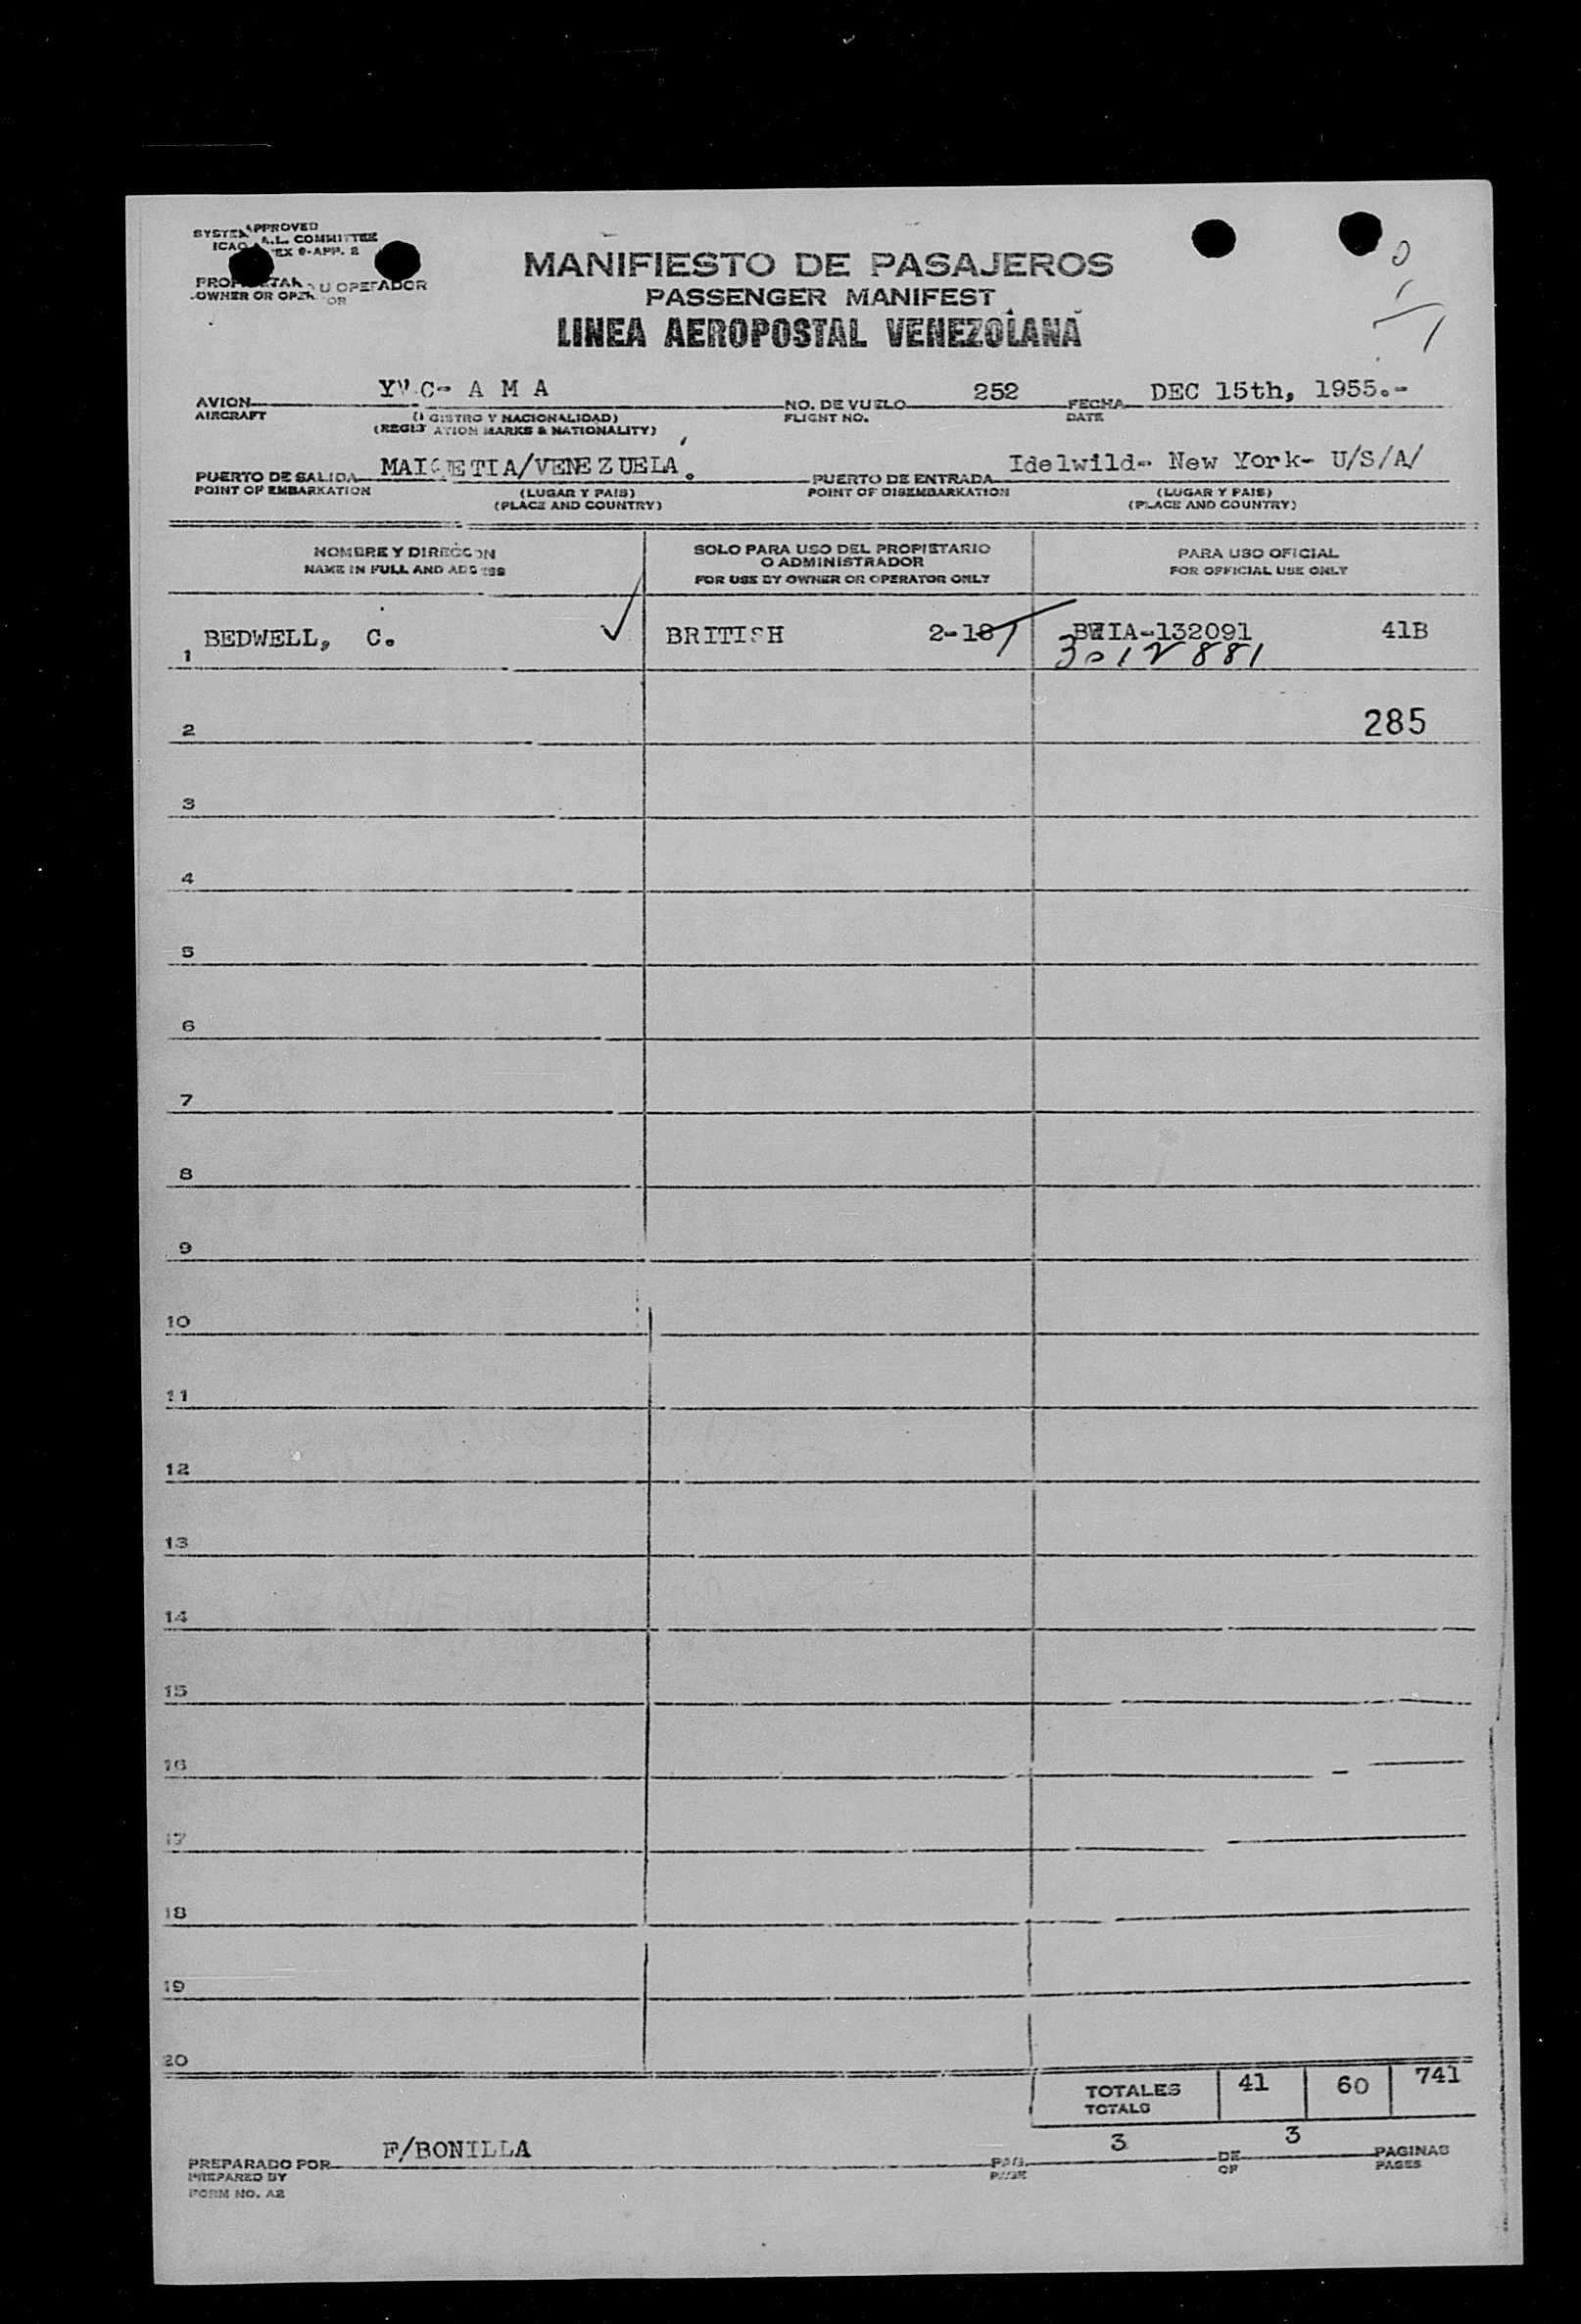 SYSTEM APPROVED
ICAO A.L. COMMITTEE
EX 9-APP. 2
U OPERADOR
OWNER OR
MANIFIESTO DE PASAJEROS
PASSENGER MANIFEST
LINEA AEROPOSTAL VENEZOLANA
AVION YV C- A M A NO. DE VUELO 252 FECHA DEC 15th, 1955.-
AIRCRAFT FLIGHT NO. DATE
(REGISTRO Y NACIONALIDAD)
(REGISTRATION MARKS & NATIONALITY)
PUERTO DE SALIDA MAIQUETIA/VENEZUELA. PUERTO DE ENTRADA Idelwild- New York- U/S/A/
POINT OF EMBARKATION (LUGAR Y PAIS) POINT OF DISEMBARKATION (LUGAR Y PAIS)
(PLACE AND COUNTRY) (PLACE AND COUNTRY)
NOMBRE Y DIRECCION SOLO PARA USO DEL PROPIETARIO PARA USO OFICIAL
O ADMINISTRADOR
NAME IN FULL AND ADDRESS FOR USE BY OWNER OR OPERATOR ONLY FOR OFFICIAL USE ONLY
1 BEDWELL, C. BRITISH 2-18/ BWIA-132091 41B
3012881
2 285
3
4
5
6
7
8
9
10
11
12
13
14
15
16
17
18
19
20
TOTALES 41 60 741
TOTALS
PREPARADO POR F/BONILLA PAG. 3 DE 3 PAGINAS
PREPARED BY PAGE OF PAGES
FORM NO. A2